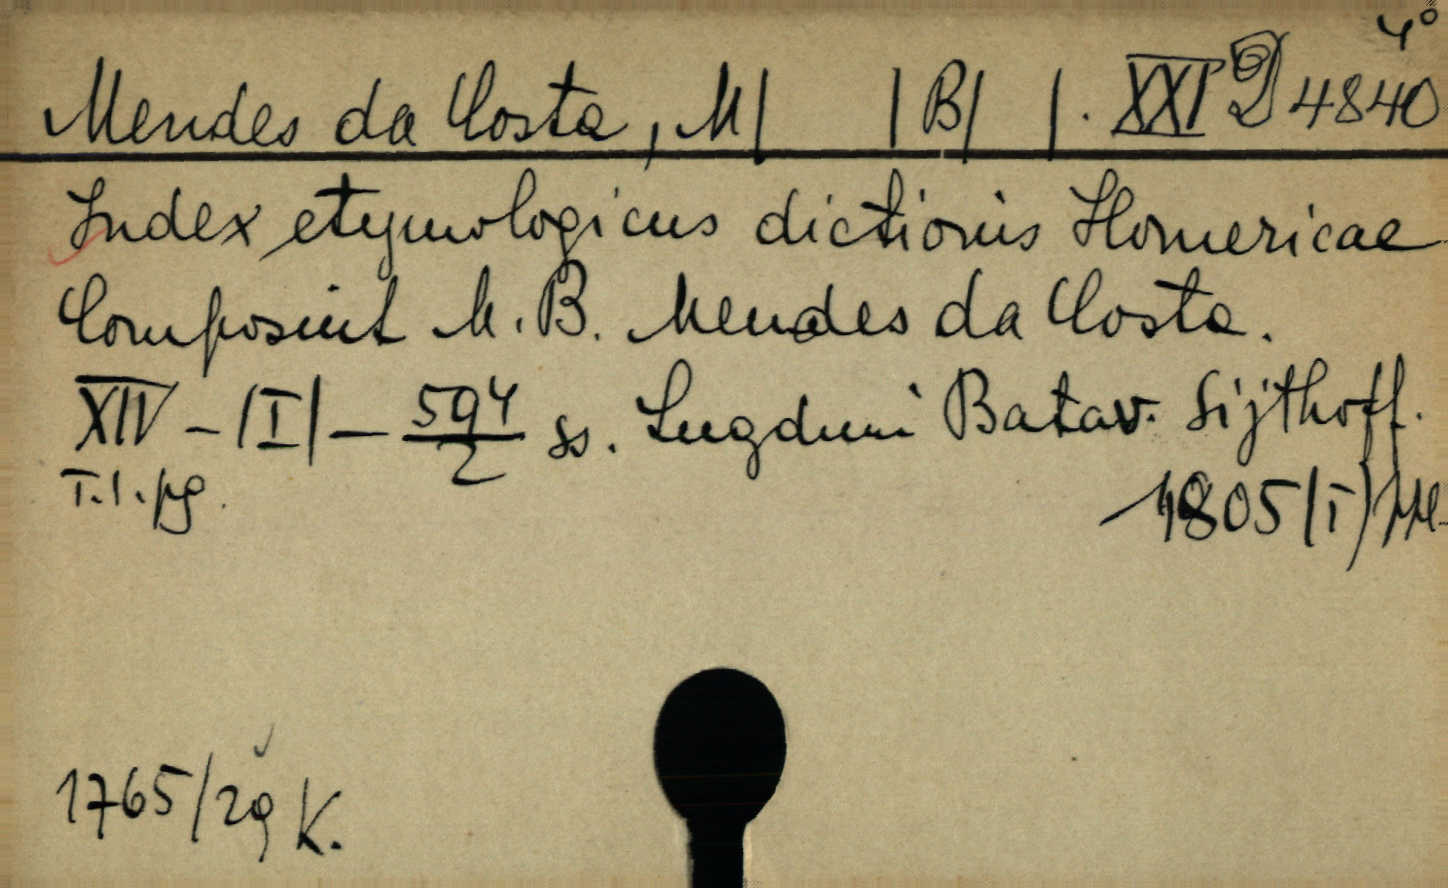 4°
Mendes da Costa, M| |B| |. XXI D 4840
Index etymologicus dictionis Homericae
Composuit M. B. Mendes da Costa.
XIV - |I| - 594/2 ss. Lugduni Batav. Sijthoff.
T.1.pg. 1805 |I)
1765/29 K.